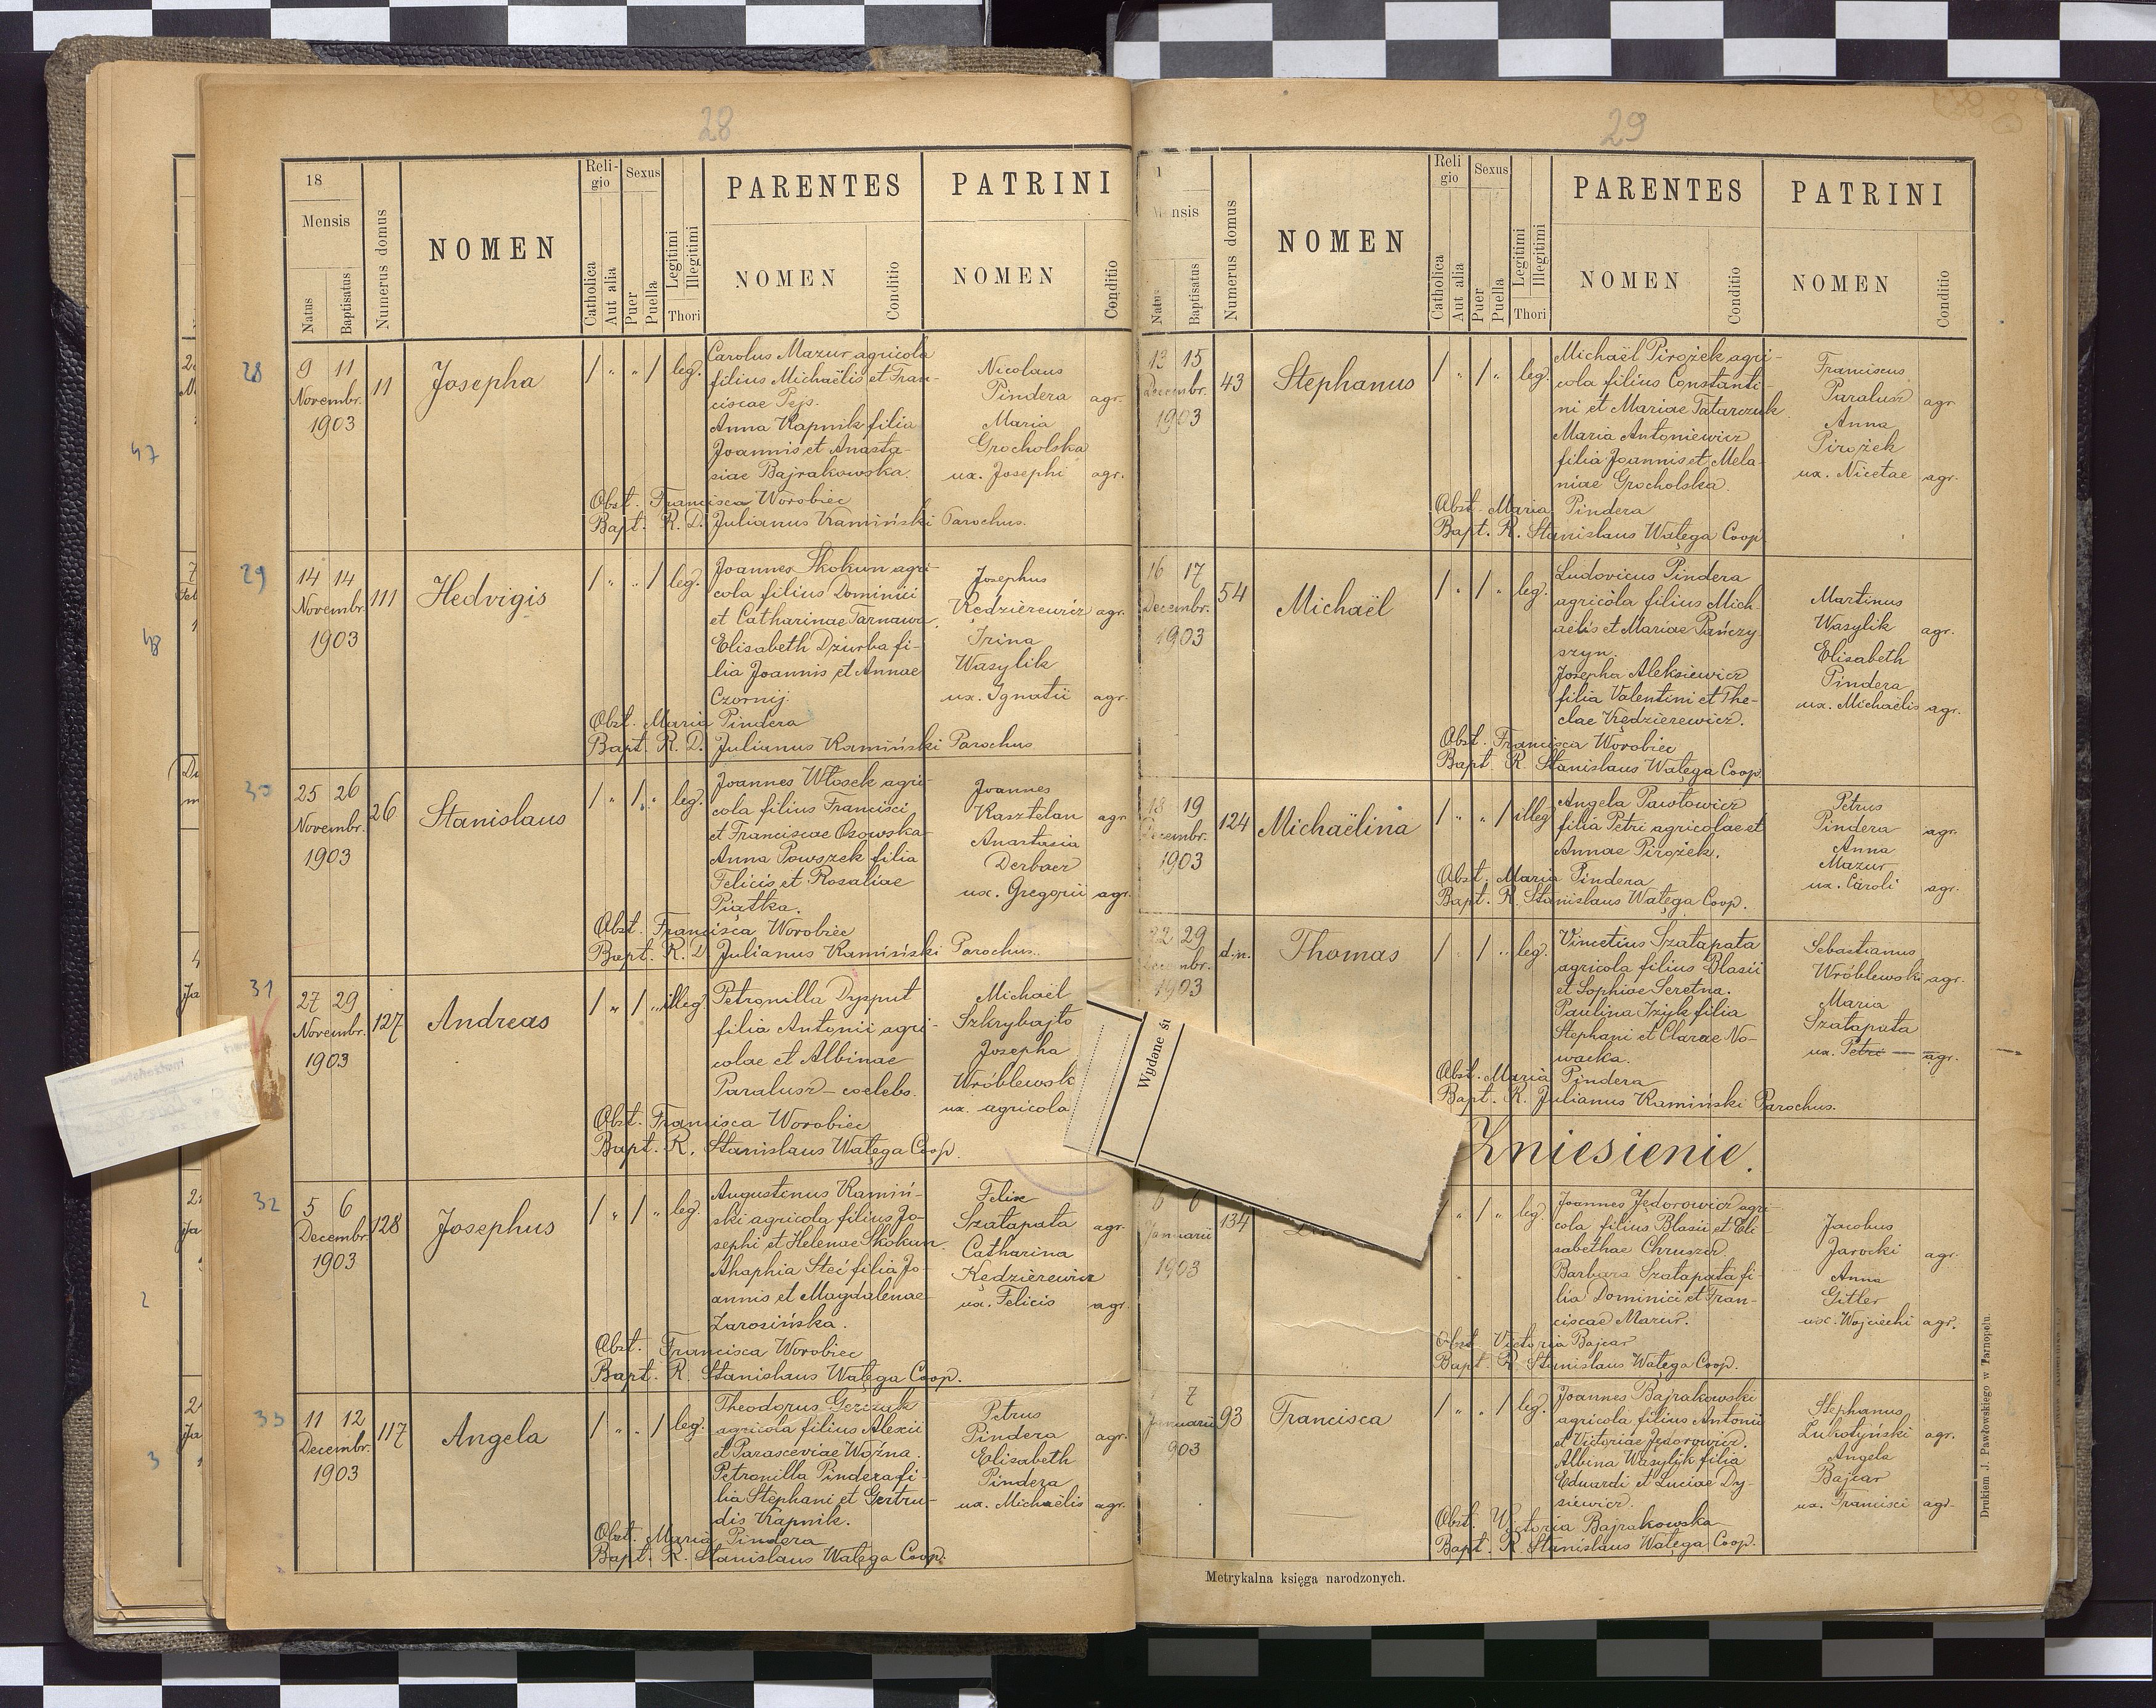 28
18
Mensis
Natus
Baptisatus
Numerus domus
NOMEN
Reli-
gio
Catholica
Aut alia
Sexus
Puer
Puella
Legitimi
Illegitimi
Thori
PARENTES
NOMEN
Conditio
PATRINI
NOMEN
Conditio
28
9 11
Novembr.
1903
11
Josepha
/ " " / leg.
Carolus Mazur agricola
filius Michaëlis et Fran-
ciscae Pejs.
Anna Kapnik filia
Joannis et Anasta-
siae Bajrakowska.
Nicolaus
Pindera agr.
Maria
Grocholska
ux. Josephi agr.
Obst. Francisca Worobiec
Bapt. R. D. Julianus Kamiński Parochus.
29
14 14
Novembr.
1903
111
Hedvigis
/ " " / leg.
Joannes Skokun agri-
cola filius Dominici
et Catharinae Tarnawa.
Elisabeth Dziurba fi-
lia Joannis et Annae
Czornij.
Josephus
Kędzierewicz agr.
Irina
Wasylik
ux. Ignatii agr.
Obst. Maria Pindera
Bapt. R. D. Julianus Kamiński Parochus
30
25 26
Novembr.
1903
26
Stanislaus
/ " / " leg.
Joannes Włosek agri-
cola filius Francisci
et Franciscae Osowska
Anna Powszek filia
Felicis et Rosaliae
Piątka.
Joannes
Kasztelan agr.
Anastasia
Derbacz
ux. Gregorii agr.
Obst. Francisca Worobiec
Bapt. R. D. Julianus Kamiński Parochus.
31
27 29
Novembr.
1903
127
Andreas
/ " / " illeg.
Petronilla Dysput
filia Antonii agri-
colae et Albinae
Paralusz – coelebs.
Michaël
Szkrybajło
Josepha
Wróblewsk
ux. agricola
Obst. Francisca Worobiec
Bapt. R. Stanislaus Wałęga Coop.
32
5 6
Decembr.
1903
128
Josephus
/ " / " leg.
Augustinus Kamiń-
ski agricola filius Jo-
sephi et Helenae Skokun.
Ahaphia Steć filia Jo-
annis et Magdalenae
Zarosińska.
Felix
Szałapata agr.
Catharina
Kędzierewicz
ux. Felicis agr.
Obst. Francisca Worobiec
Bapt. R. Stanislaus Wałęga Coop.
33
11 12
Decembr.
1903
117
Angela
/ " " / leg.
Theodorus Gerczak
agricola filius Alexii
et Parasceviae Woźna.
Petronilla Pindera fi-
lia Stephani et Gertru-
dis Kapnik.
Petrus
Pindera agr.
Elisabeth
Pindera
ux. Michaëlis agr.
Obst. Maria Pindera
Bapt. R. Stanislaus Wałęga Coop.
47
48
2
3
29
1
Mensis
Natus
Baptisatus
Numerus domus
NOMEN
Reli
gio
Catholica
Aut alia
Sexus
Puer
Puella
Legitimi
Illegitimi
Thori
PARENTES
NOMEN
Conditio
PATRINI
NOMEN
Conditio
13 15
Decembr.
1903
43
Stephanus
/ " / " leg.
Michaël Pirożek agri-
cola filius Constanti-
ni et Mariae Tatarczuk.
Maria Antoniewicz
filia Joannis et Mela-
niae Grocholska.
Franciscus
Paralusz agr.
Anna
Pirożek
ux. Nicetae agr.
Obst. Maria Pindera
Bapt. R. Stanislaus Wałęga Coop.
16 17
Decembr.
1903
54
Michaël
/ " / " leg.
Ludovicus Pindera
agricola filius Mich-
aëlis et Mariae Pańczy
szyn.
Josepha Aleksiewicz
filia Valentini et The-
clae Kędzierewicz.
Martinus
Wasylik agr.
Elisabeth
Pindera
ux. Michaëlis agr.
Obst. Francisca Worobiec
Bapt. R. Stanislaus Wałęga Coop.
18 19
Decembr.
1903
124
Michaëlina
/ " " / illeg
Angela Pawłowicz
filia Petri agricolae et
Annae Pirożek.
Petrus
Pindera agr.
Anna
Mazur
ux. Caroli agr.
Obst. Maria Pindera
Bapt. R. Stanislaus Wałęga Coop.
22 29
Decembr.
1903
d.n.
Thomas
/ " / " leg.
Vincetius Szałapata
agricola filius Blasii
et Sophiae Seretna.
Paulina Iżyk filia
Stephani et Clarae No-
wacka.
Sebastianus
Wróblewski agr.
Maria
Szałapata
ux. Petri — agr.
Obst. Maria Pindera
Bapt. R. Julianus Kamiński Parochus.
Wydane
Zniesienie.
6 6
Januarii
1903
134
" / " leg.
Joannes Jędorowicz agri-
cola filius Blasii et Eli-
sabethae Chruszcz.
Barbara Szałapata fi-
lia Dominici et Fran-
ciscae Mazur.
Jacobus
Jarocki agr.
Anna
Gitler
ux. Wojciechi agr.
Obst. Victoria Bajcar
Bapt. R. Stanislaus Wałęga Coop.
7
Januarii
903
93
Francisca
/ " " / leg.
Joannes Bajrakowski
agricola filius Antonii
et Victoriae Jędorowicz.
Albina Wasylyk filia
Eduardi et Luciae Dy-
siewicz.
Stephanus
Lukotyński agr.
Angela
Bajcar
ux. Francisci agr.
Obst. Victoria Bajrakowska
Bapt. R. Stanislaus Wałęga Coop.
Metrykalna księga narodzonych.
Drukiem J. Pawłowskiego w Tarnopolu.